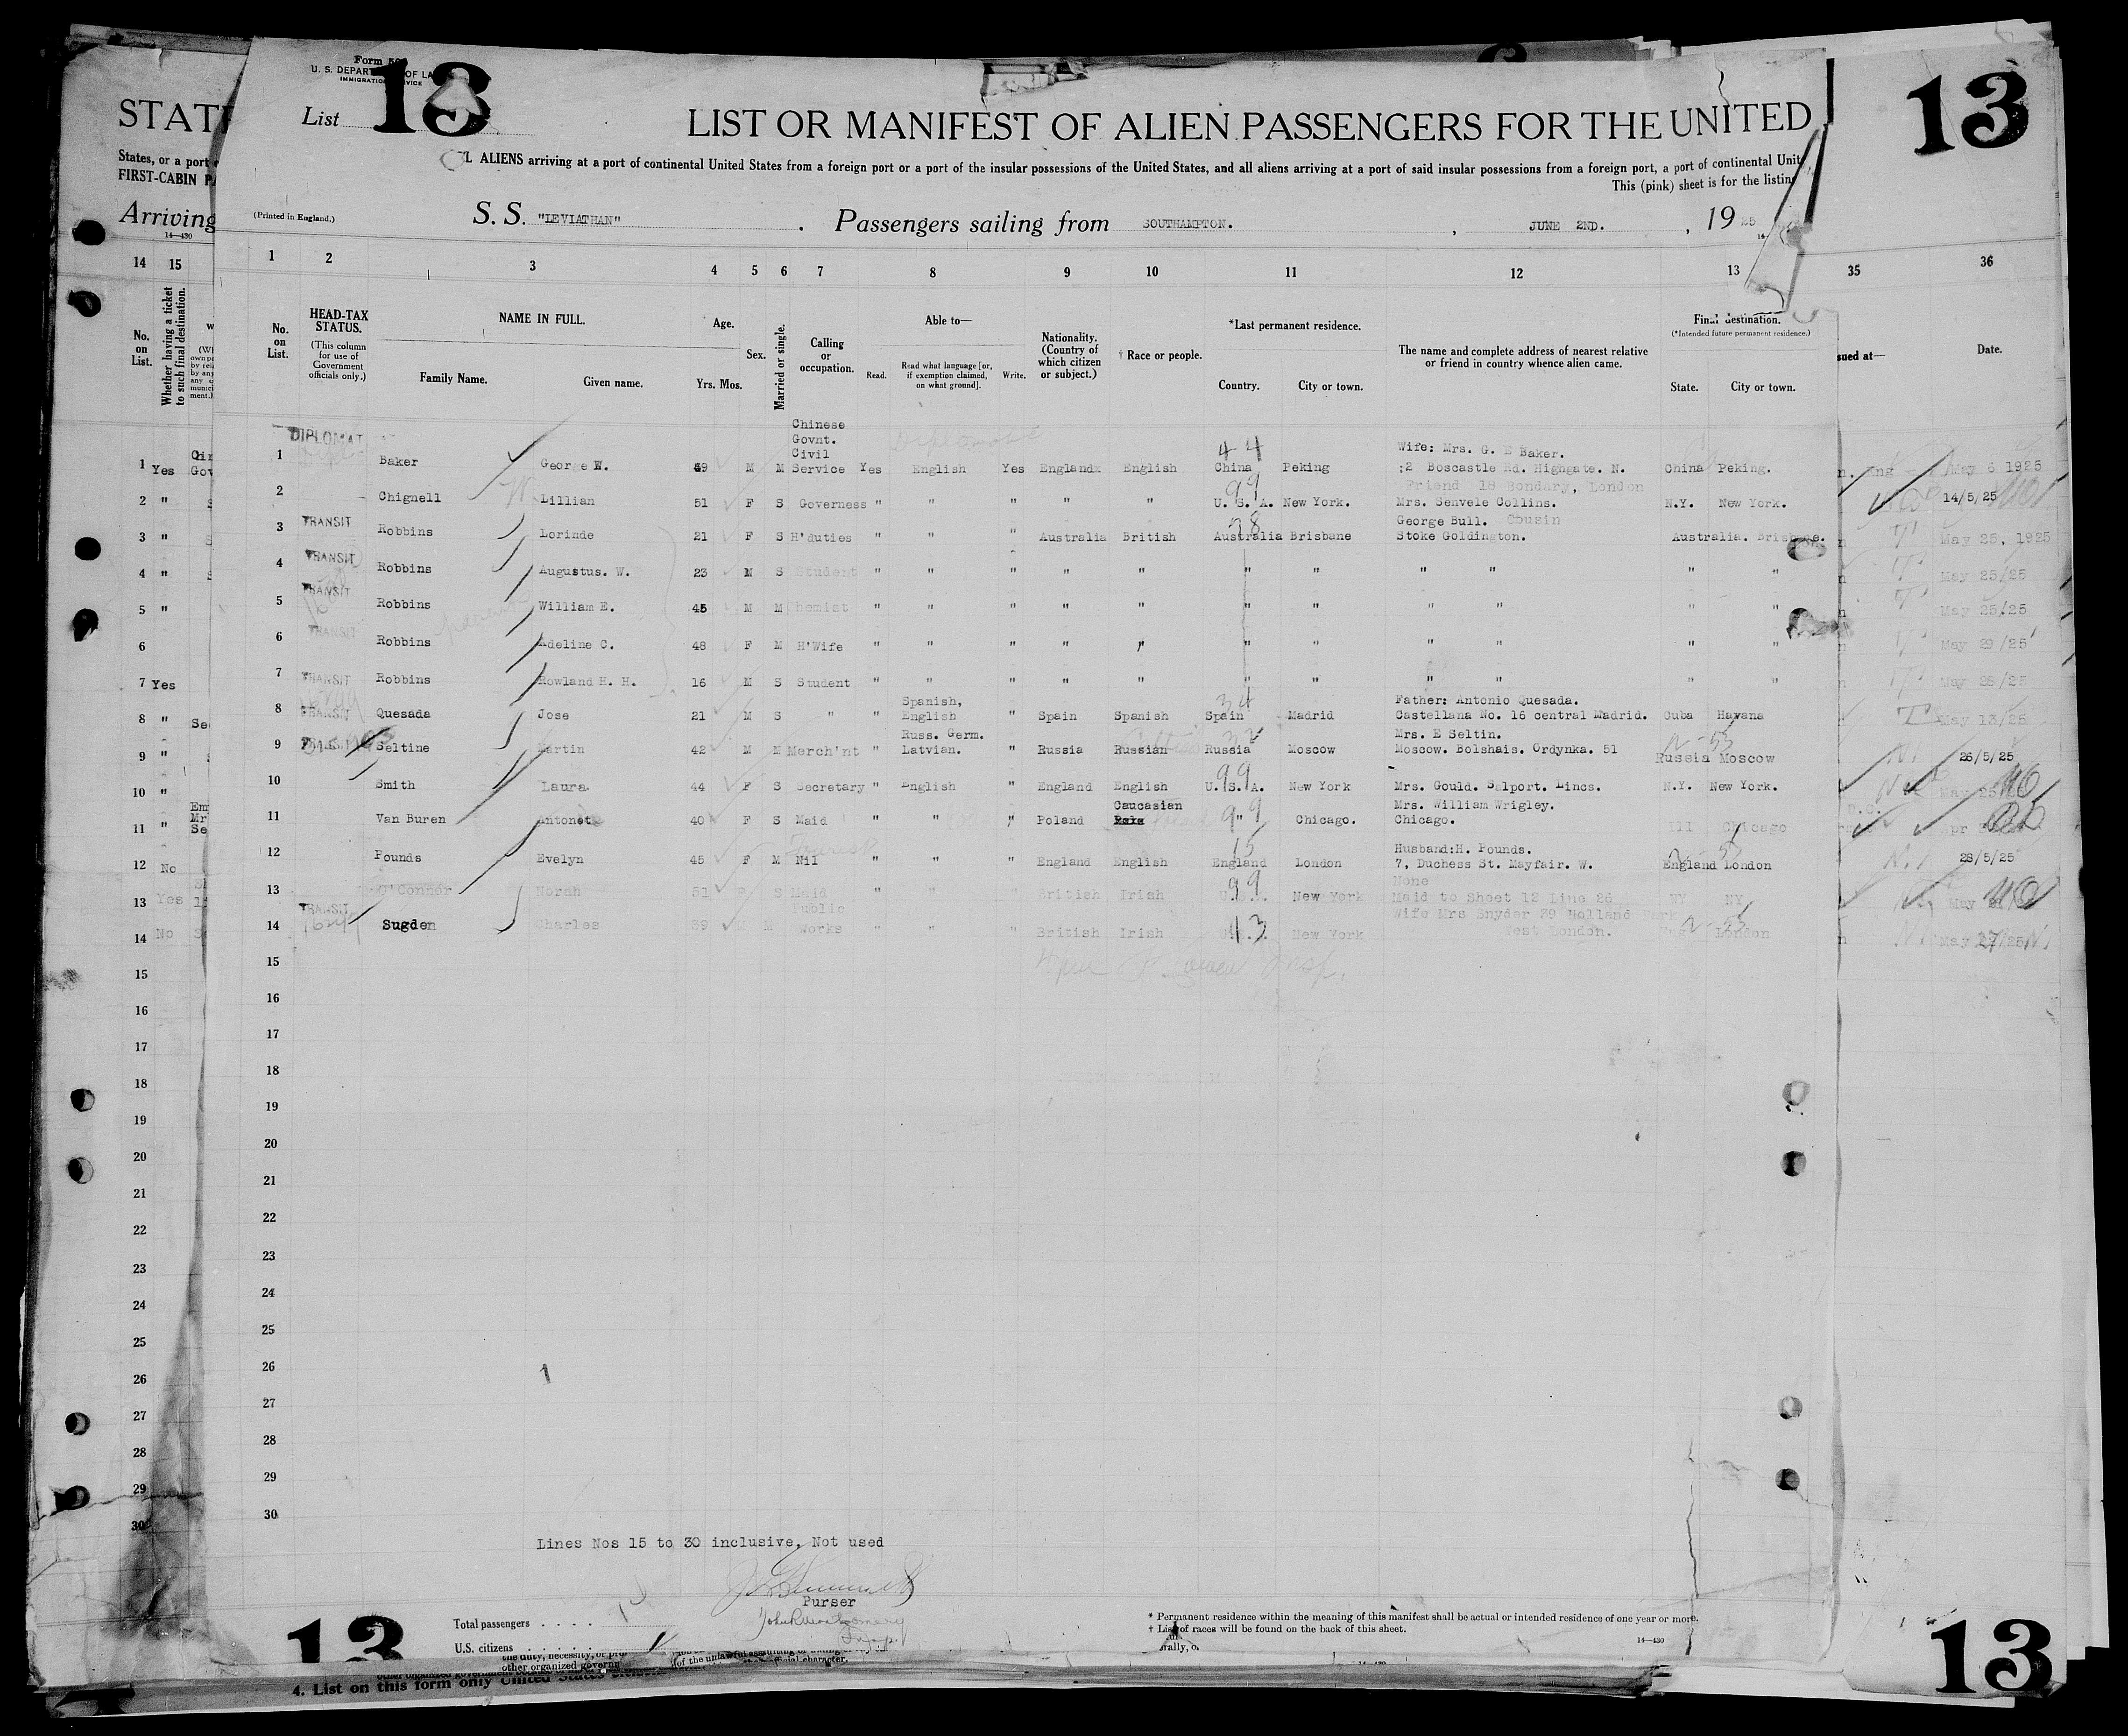 Form
U. S. DEPART OF LA
IMMIGRATION SERVICE
List 13
13
STAT
LIST OR MANIFEST OF ALIEN PASSENGERS FOR THE UNITED
States, or a port
FIRST-CABIN
L ALIENS arriving at a port of continental United States from a foreign port or a port of the insular possessions of the United States, and all aliens arriving at a port of said insular possessions from a foreign port, a port of continental Unit
This (pink) sheet is for the listing
Arriving
14—430
(Printed in England.)
S. S. "LEVIATHAN" . Passengers sailing from SOUTHAMPTON. , JUNE 2ND. , 19 25
14 15 1 2 3 4 5 6 7 8 9 10 11 12 13 35 36
No. on List.
Whether having a ticket to such final destination.
No. on List.
HEAD-TAX STATUS. (This column for use of Government officials only.)
NAME IN FULL.
Family Name. Given name.
Age.
Yrs. Mos.
Sex.
Married or single.
Calling or occupation.
Able to—
Read. Read what language [or, if exemption claimed, on what ground]. Write.
Nationality. (Country of which citizen or subject.)
† Race or people.
*Last permanent residence.
Country. City or town.
The name and complete address of nearest relative or friend in country whence alien came.
Final destination.
(*Intended future permanent residence.)
State. City or town.
sued at—
Date.
DIPLOMAT Chinese Govnt. Civil Diplomat 44 Wife: Mrs. G. E Baker.
1 Yes 1 Baker George W. 49 M M Service Yes English Yes England English China Peking ;2 Boscastle Rd. Highgate. N. China Peking. May 6 1925
99 Friend 18 Bondary, London
2 " 2 Chignell Lillian 51 F S Governess " " " " " U. S. A. New York. Mrs. Senvele Collins. N.Y. New York. 14/5/25
TRANSIT 78 George Bull. Cousin
3 " 3 Robbins Lorinde 21 F S H'duties " " " Australia British Australia Brisbane Stoke Goldington. Australia. Brisbane. May 25, 1925
4 " 4 TRANSIT Robbins Augustus. W. 23 M S Student " " " " " " " " " " " May 25/25
5 " 5 TRANSIT Robbins William E. 45 M M Chemist " " " " " " " " " " " May 25/25
6 6 TRANSIT Robbins Adeline C. 48 F M H'Wife " " " " " " " " " " " May 29/25
7 Yes 7 TRANSIT Robbins Rowland H. H. 16 M S Student " " " " " " " " " " " May 28/25
Spanish, 34 Father: Antonio Quesada.
8 " Se 8 TRANSIT Quesada Jose 21 M S " " English " Spain Spanish Spain Madrid Castellana No. 16 central Madrid. Cuba Havana May 13/25
Russ. Germ. Mrs. E Seltin.
9 " 9 Seltine Martin 42 M M Merch'nt " Latvian. " Russia Russian Russia Moscow Moscow. Bolshais. Ordynka. 51 Russia Moscow 26/5/25
99
10 " 10 Smith Laura 44 F S Secretary " English " England English U. S. A. New York Mrs. Gould. Salport. Lincs. N.Y. New York. May 25
Caucasian 99 Mrs. William Wrigley.
11 " 11 Van Buren Antonet 40 F S Maid " " " Poland " Chicago. Chicago. Ill Chicago
Tourist 15 Husband:H. Pounds.
12 No 12 Pounds Evelyn 45 F M Nil " " " England English England London 7, Duchess St. Mayfair. W. England London 28/5/25
99 None
13 Yes 13 O'Connor Norah 51 F S Maid " " " British Irish New York Maid to Sheet 12 Line 26 NY NY May
TRANSIT Public Wife Mrs Snyder 39 Holland Park
14 No 14 Sugden Charles 39 M M Works " " " British Irish New York West London. Eng London May 27/25
15 15
16 16
17 17
18 18
19 19
20 20
21 21
22 22
23 23
24 24
25 25
26 26
27 27
28 28
29 29
30 30
Lines Nos 15 to 30 inclusive, Not used
Purser
13
Total passengers . . . .
U.S. citizens . . . . . .
* Permanent residence within the meaning of this manifest shall be actual or intended residence of one year or more.
† List of races will be found on the back of this sheet.
14—430
other organized governm
4. List on this form only United States
13